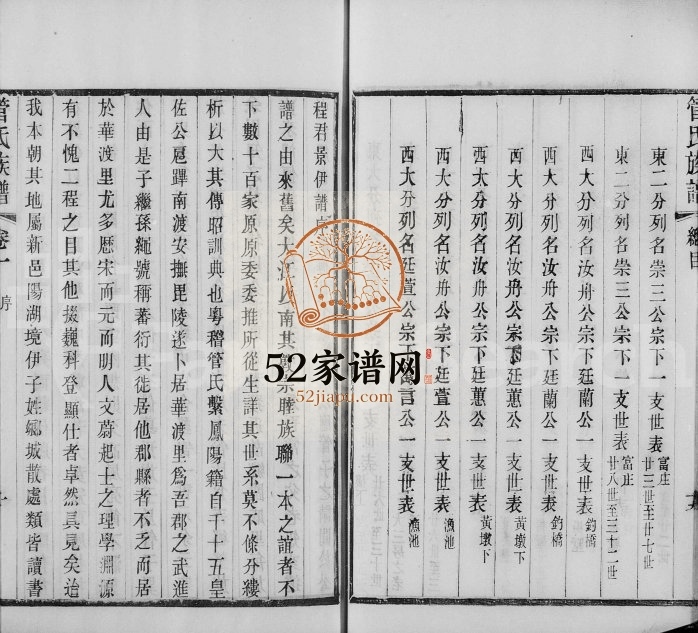 管氏族譜
總目
東二分列名崇三公宗下一支世表 富庄 廿三世至廿七世
東二分列名崇三公宗下一支世表 富庄 廿八世至三十二世
西大分列名汝舟公宗下廷蘭公一支世表 釣橋
西大分列名汝舟公宗下廷蘭公一支世表 釣橋
西大分列名汝舟公宗下廷蕙公一支世表 黃墩下
西大分列名汝舟公宗下廷蕙公一支世表 黃墩下
西大分列名汝舟公宗下廷萱公一支世表 漁池
西大分列名廷萱公宗下 言公一支世表 漁池
程君景伊譜序
譜之由來舊矣大江以南其敦宗睦族聯一本之誼者不
下數十百家原原委委推所從生詳其世系莫不條分縷
析以大其傳昭訓典也粵稽管氏繫鳳陽籍自千十五皇
佐公扈蹕南渡安撫毘陵遂卜居華渡里為吾郡之武進
人由是子繼孫繩號稱蕃衍其徙居他郡縣者不乏而居
於華渡里尤多歷宋而元而明人文蔚起士之理學淵源
有不愧二程之目其他掇巍科登顯仕者卓然具見矣迨
我本朝其地屬新邑陽湖境伊子姓鄉城散處類皆讀書
管氏族譜
卷一
序
52家谱网
52jiapu.com